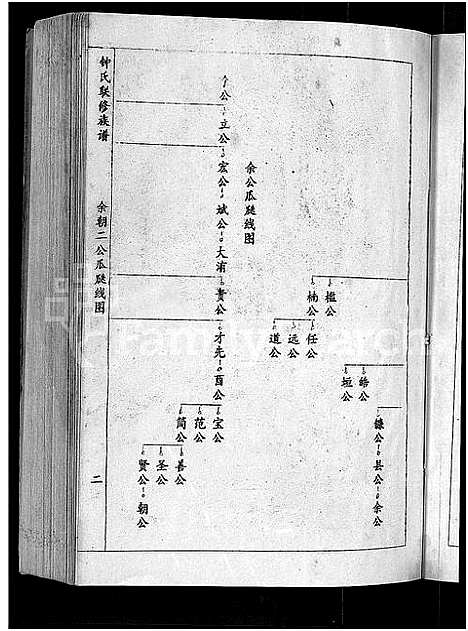 钟氏联修族谱
余朝二公瓜瓞线图
二
余公瓜瓞线图
槛公
楠公
任公
远公
道公
皓公
垣公
公 县公 余公
个公 立公
宏公 斌公 大洧
贵公
才先 酉公
宝公
范公
简公
善公
圣公
贤公 朝公